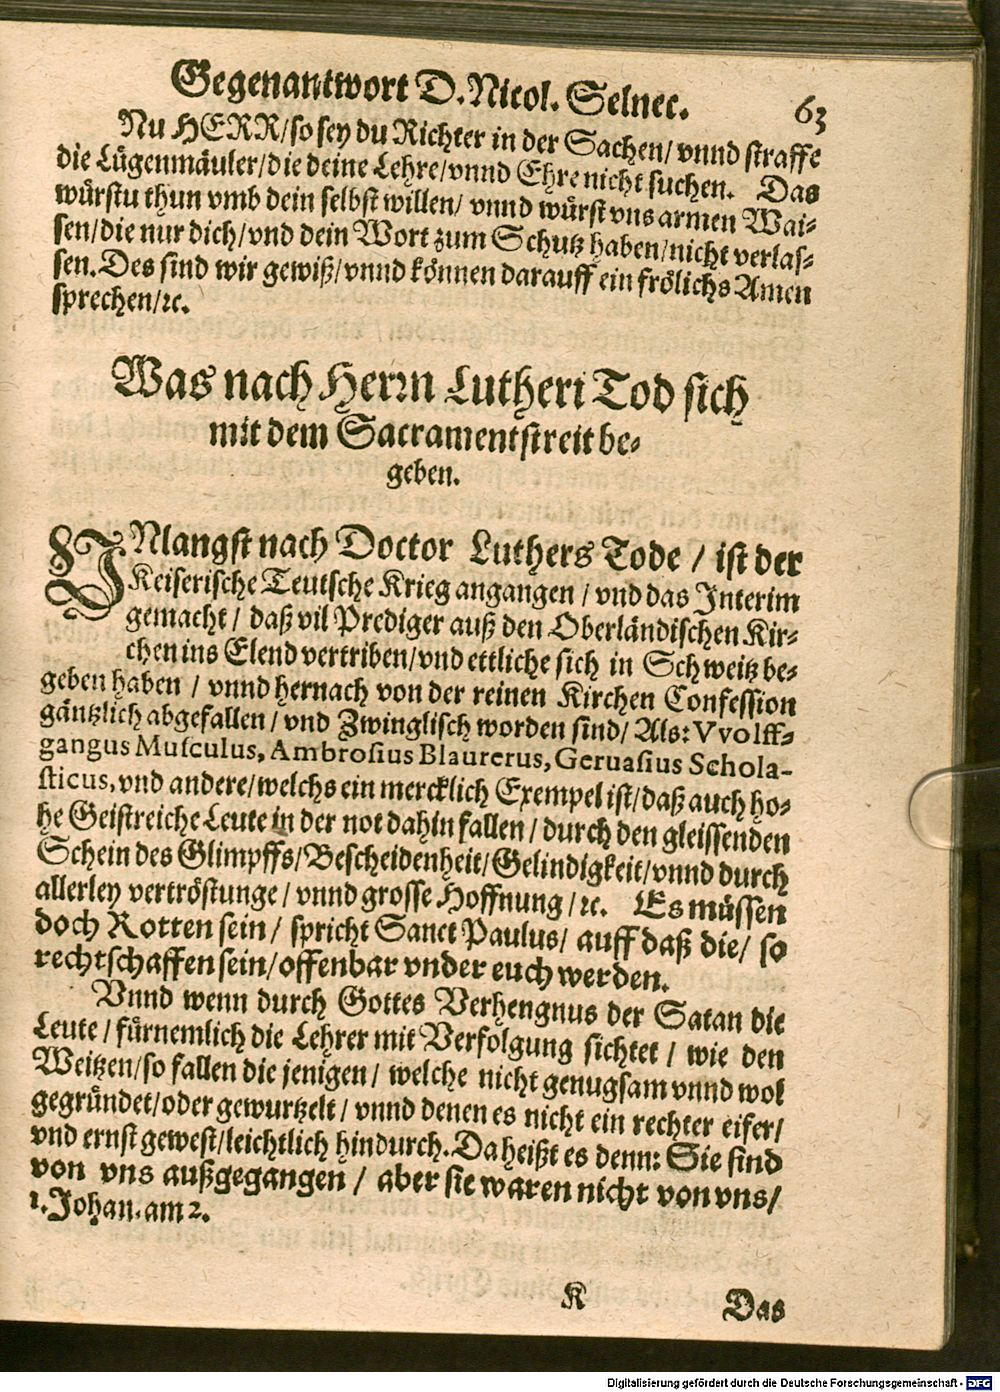 Gegenantwort D. Nicol. Selnec. 63
Nu HERR/ so sey du Richter in der Sachen/ vnnd straffe
die Lügenmäuler/ die deine Lehre/ vnnd Ehre nicht suchen. Das
würstu thun vmb dein selbst willen/ vnnd würst vns armen Wai-
sen/ die nur dich/ vnd dein Wort zum Schutz haben/ nicht verlas-
sen. Des sind wir gewiß/ vnnd können darauff ein frölichs Amen
sprechen/ ꝛc.
Was nach Herrn Lutheri Tod sich
mit dem Sacramentstreit be-
geben.
UNlangst nach Doctor Luthers Tode / ist der
Keiserische Teutsche Krieg angangen / vnd das Interim
gemacht / daß vil Prediger auß den Oberländischen Kir-
chen ins Elend vertriben/ vnd ettliche sich in Schweitz be-
geben haben / vnnd hernach von der reinen Kirchen Confession
gäntzlich abgefallen / vnd Zwinglisch worden sind/ Als: VVolff-
gangus Musculus, Ambrosius Blaurerus, Geruasius Schola-
sticus, vnd andere/ welchs ein mercklich Exempel ist/ daß auch ho-
he Geistreiche Leute in der not dahin fallen / durch den gleissenden
Schein des Glimpffs/ Bescheidenheit/ Gelindigkeit/ vnnd durch
allerley vertröstunge / vnnd grosse Hoffnung / ꝛc. Es müssen
doch Rotten sein / spricht Sanct Paulus/ auff daß die/ so
rechtschaffen sein/ offenbar vnder euch werden.
Vnnd wenn durch Gottes Verhengnus der Satan die
Leute / fürnemlich die Lehrer mit Verfolgung sichtet / wie den
Weitzen/ so fallen die jenigen / welche nicht genugsam vnnd wol
gegründet/ oder gewurtzelt / vnnd denen es nicht ein rechter eifer/
vnd ernst gewest/ leichtlich hindurch. Da heißt es denn: Sie sind
von vns außgegangen / aber sie waren nicht von vns/
1. Johan. am 2.
K Das
Digitalisierung gefördert durch die Deutsche Forschungsgemeinschaft - DFG